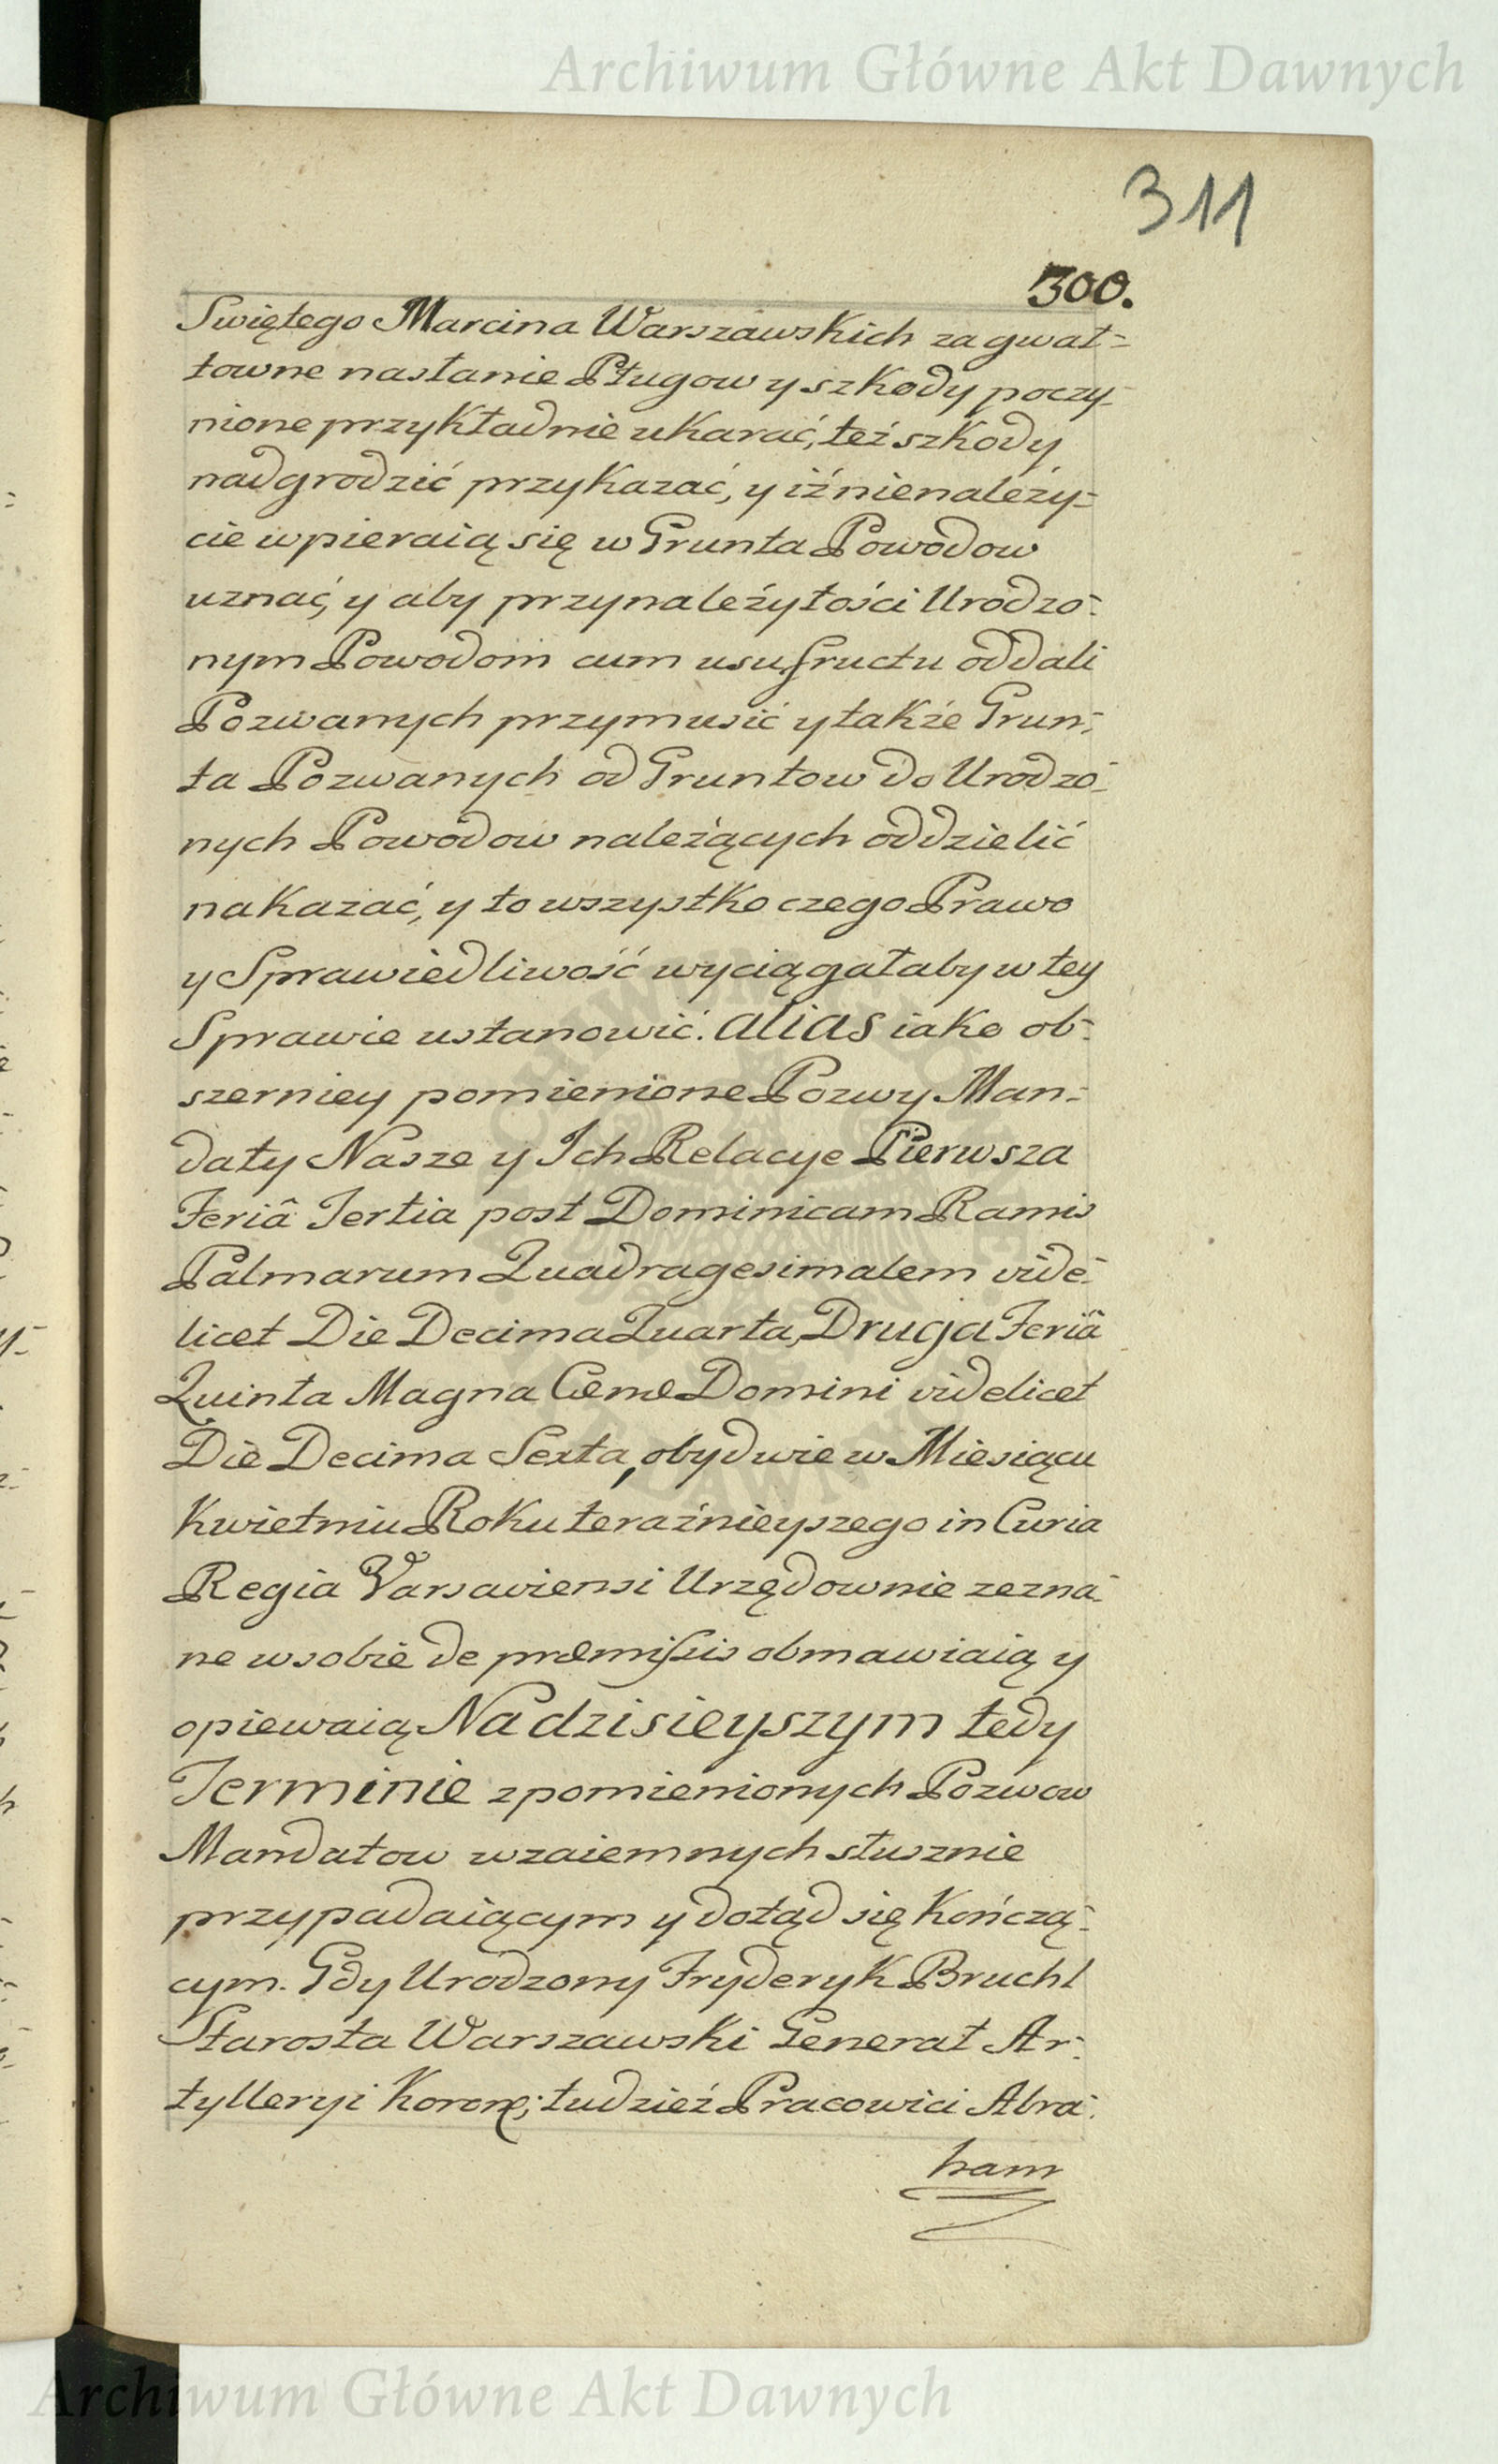 Archiwum Główne Akt Dawnych
311
300.
Swiętego Marcina Warszawskich za gwał=
towne nasłanie Pługow y szkody poczy-
nione przykładnie ukarać, też szkody
nadgrodzić przykazać, y iż nienależy=
cie wpieraią się w Grunta Powodow
uznać, y aby przynależytości Urodzo-
nym Powodom cum usufructu oddali
Pozwanych przymusić y także Grun-
ta Pozwanych od Gruntow do Urodzo-
nych Powodow należących oddzielić
nakazać, y to wszystko czego Prawo
y Sprawiedliwość wyciągałaby w tey
Sprawie ustanowić. alias iako ob-
szerniey pomienione Pozwy Man-
daty Nasze y Ich Relacye Pierwsza
Feriâ Tertia post Dominicam Ramis
Palmarum Quadragesimalem vide-
licet Die Decima Quarta, Druga Feriâ
Quinta Magna Cœnæ Domini videlicet
Die Decima Sexta, obydwie w Miesiącu
Kwietniu Roku teraźnieyszego in Curia
Regia Varsaviensi Urzędownie zezna-
ne w sobie de præmissis obmawiaią y
opiewaią Na dzisieyszym tedy
Terminie z pomienionych Pozwow
Mandatow wzaiemnych słusznie
przypadaiącym y dotąd się kończą-
cym. Gdy Urodzony Fryderyk Bruchl
Starosta Warszawski Generał Ar-
tylleryi Koronę; tudzież Pracowici Abra-
ham
Archiwum Główne Akt Dawnych